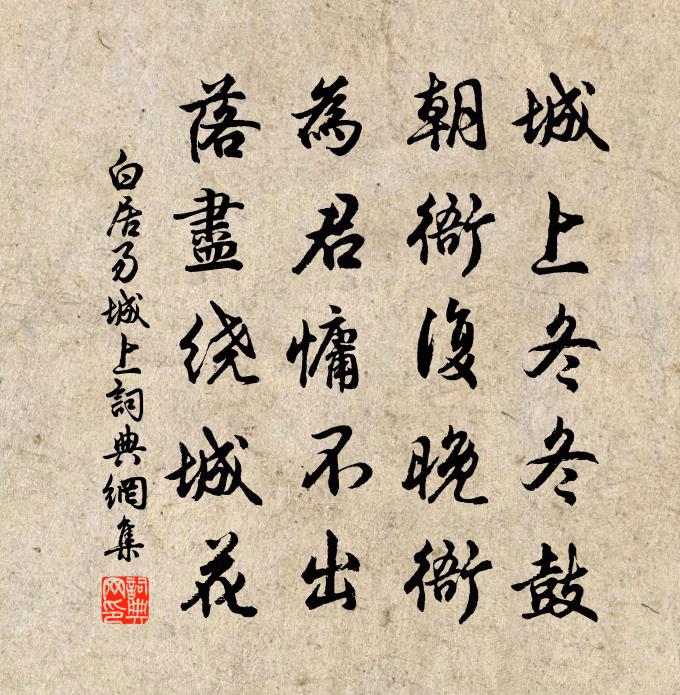 城上冬冬鼓
朝衙復晚衙
為君慵不出
落盡繞城花
白居易城上詞典網集
詞典
网印